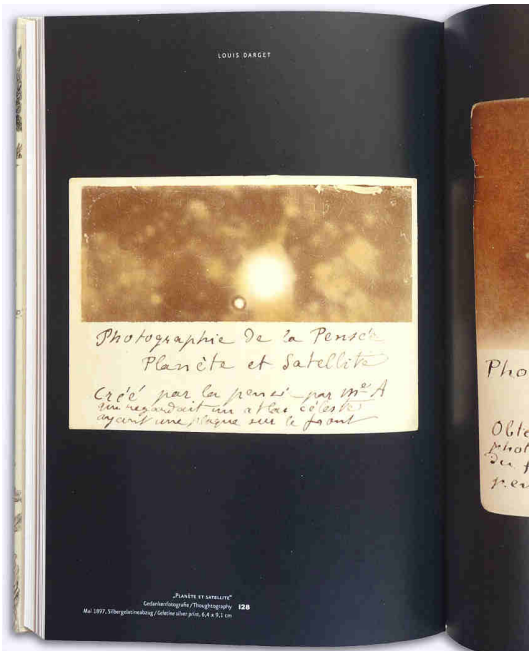 LOUIS DARGET
Photographie de la Pensée
Planète et Satellite
Créé par la pensé par Mr A
qui regardait un atlas céleste
ayant une plaque sur le front
„PLANÈTE ET SATELLITE“
Gedankenfotografie / Thoughtography 128
Mai 1897, Silbergelatineabzug / Gelatine silver print, 6,4 x 9,1 cm
Pho
Obte
phot
du f